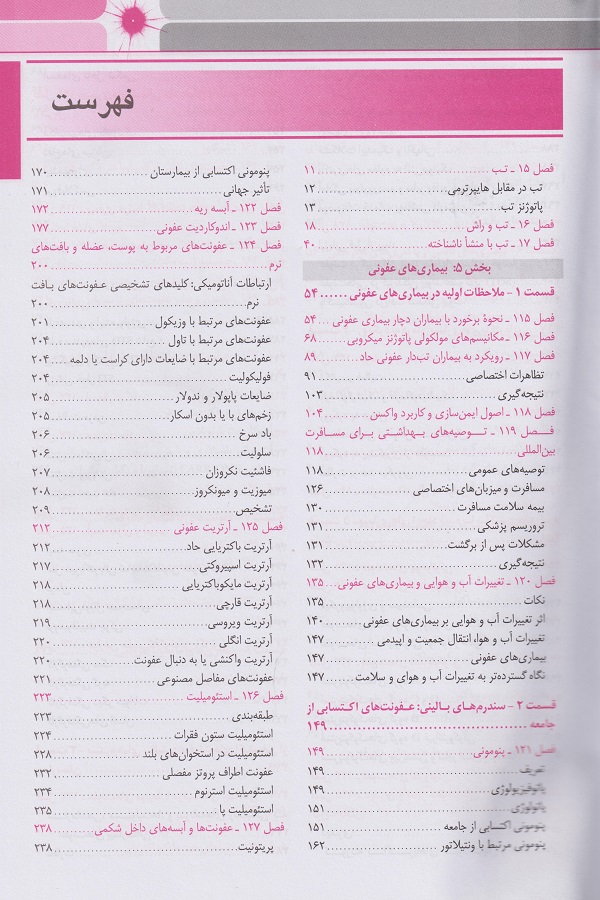 فهرست
فصل ۱۵ ـ تب ........ ۱۱
تب در مقابل هایپرترمی ........ ۱۲
پاتوژنز تب ........ ۱۳
فصل ۱۶ ـ تب و راش ........ ۱۸
فصل ۱۷ ـ تب با منشأ ناشناخته ........ ۴۰
بخش ۵: بیماری‌های عفونی
قسمت ۱ - ملاحظات اولیه در بیماری‌های عفونی ...... ۵۴
فصل ۱۱۵ ـ نحوهٔ برخورد با بیماران دچار بیماری عفونی ... ۵۴
فصل ۱۱۶ ـ مکانیسم‌های مولکولی پاتوژنز میکروبی ... ۶۸
فصل ۱۱۷ ـ رویکرد به بیماران تب‌دار عفونی حاد ........ ۸۹
تظاهرات اختصاصی ........ ۹۱
نتیجه‌گیری ........ ۱۰۳
فصل ۱۱۸ ـ اصول ایمن‌سازی و کاربرد واکسن ........ ۱۰۴
فـــصل ۱۱۹ ـ تـــوصیه‌های بـــهداشـــتی برای مسـافرت
بین‌المللی ........ ۱۱۸
توصیه‌های عمومی ........ ۱۱۸
مسافرت و میزبان‌های اختصاصی ........ ۱۲۶
بیمه سلامت مسافرت ........ ۱۳۰
تروریسم پزشکی ........ ۱۳۱
مشکلات پس از برگشت ........ ۱۳۱
نتیجه‌گیری ........ ۱۳۲
فصل ۱۲۰ ـ تغییرات آب و هوایی و بیماری‌های عفونی ... ۱۳۵
نکات ........ ۱۳۵
اثر تغییرات آب و هوایی بر بیماری‌های عفونی ........ ۱۴۰
تغییرات آب و هوا، انتقال جمعیت و اپیدمی ........ ۱۴۷
بیماری‌های عفونی ........ ۱۴۷
نگاه گسترده‌تر به تغییرات آب و هوای و سلامت ........ ۱۴۷
قسمت ۲ - سندرم‌های بـالینی: عـفونت‌های اکـتسابی از
جامعه ........ ۱۴۹
فصل ۱۲۱ ـ پنومونی ........ ۱۴۹
تعریف ........ ۱۴۹
پاتوفیزیولوژی ........ ۱۴۹
پاتولوژی ........ ۱۵۱
پنومونی اکتسابی از جامعه ........ ۱۵۱
پنومونی مرتبط با ونتیلاتور ........ ۱۶۲
پنومونی اکتسابی از بیمارستان ........ ۱۷۰
تأثیر جهانی ........ ۱۷۱
فصل ۱۲۲ ـ آبسه ریه ........ ۱۷۲
فصل ۱۲۳ ـ اندوکاردیت عفونی ........ ۱۷۷
فصل ۱۲۴ ـ عفونت‌های مربوط به پوست، عضله و بافت‌های
نرم ........ ۲۰۰
ارتباطات آناتومیکی: کلیدهای تشخیصی عـفونت‌های بـافت
نرم ........ ۲۰۰
عفونت‌های مرتبط با وزیکول ........ ۲۰۱
عفونت‌های مرتبط با تاول ........ ۲۰۴
عفونت‌های مرتبط با ضایعات دارای کراست یا دلمه .... ۲۰۴
فولیکولیت ........ ۲۰۴
ضایعات پاپولار و ندولار ........ ۲۰۵
زخم‌های با یا بدون اسکار ........ ۲۰۵
باد سرخ ........ ۲۰۶
سلولیت ........ ۲۰۶
فاشئیت نکروزان ........ ۲۰۷
میوزیت و میونکروز ........ ۲۰۸
تشخیص ........ ۲۰۹
فصل ۱۲۵ ـ آرتریت عفونی ........ ۲۱۲
آرتریت باکتریایی حاد ........ ۲۱۲
آرتریت اسپیروکتی ........ ۲۱۷
آرتریت مایکوباکتریایی ........ ۲۱۸
آرتریت قارچی ........ ۲۱۸
آرتریت ویروسی ........ ۲۱۹
آرتریت انگلی ........ ۲۲۰
آرتریت واکنشی یا به دنبال عفونت ........ ۲۲۰
عفونت‌های مفاصل مصنوعی ........ ۲۲۱
فصل ۱۲۶ ـ استئومیلیت ........ ۲۲۳
طبقه‌بندی ........ ۲۲۳
استئومیلیت ستون فقرات ........ ۲۲۴
استئومیلیت در استخوان‌های بلند ........ ۲۲۸
عفونت اطراف پروتز مفصلی ........ ۲۳۲
استئومیلیت استرنوم ........ ۲۳۴
استئومیلیت پا ........ ۲۳۵
فصل ۱۲۷ ـ عفونت‌ها و آبسه‌های داخل شکمی ........ ۲۳۸
پریتونیت ........ ۲۳۸